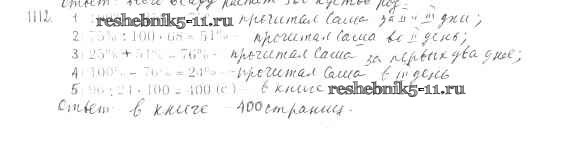 Ответ:
1112. 1 reshebnik5-11.ru прочитал Саша за II и III дни;
2) 75% : 100 · 68 = 51% - прочитал Саша во II день;
3) 25% + 51% = 76% - прочитал Саша за первых два дня;
4) 100% - 76% = 24% - прочитал Саша в III день
5) 96 : 24 · 100 = 400 (с) - в книге reshebnik5-11.ru
Ответ: в книге 400 страниц.